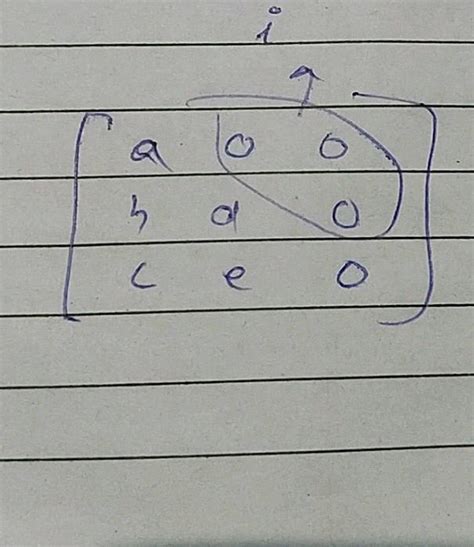 i
a 0 0
b d 0
c e 0